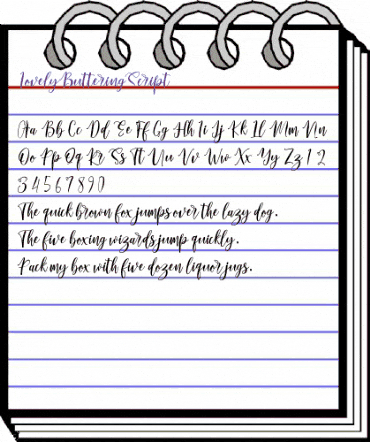 Lovely Buttering Script
Aa Bb Cc Dd Ee Ff Gg Hh Ii Jj Kk Ll Mm Nn
Oo Pp Qq Rr Ss Tt Uu Vv Ww Xx Yy Zz 1 2
3 4 5 6 7 8 9 0
The quick brown fox jumps over the lazy dog.
The five boxing wizards jump quickly.
Pack my box with five dozen liquor jugs.